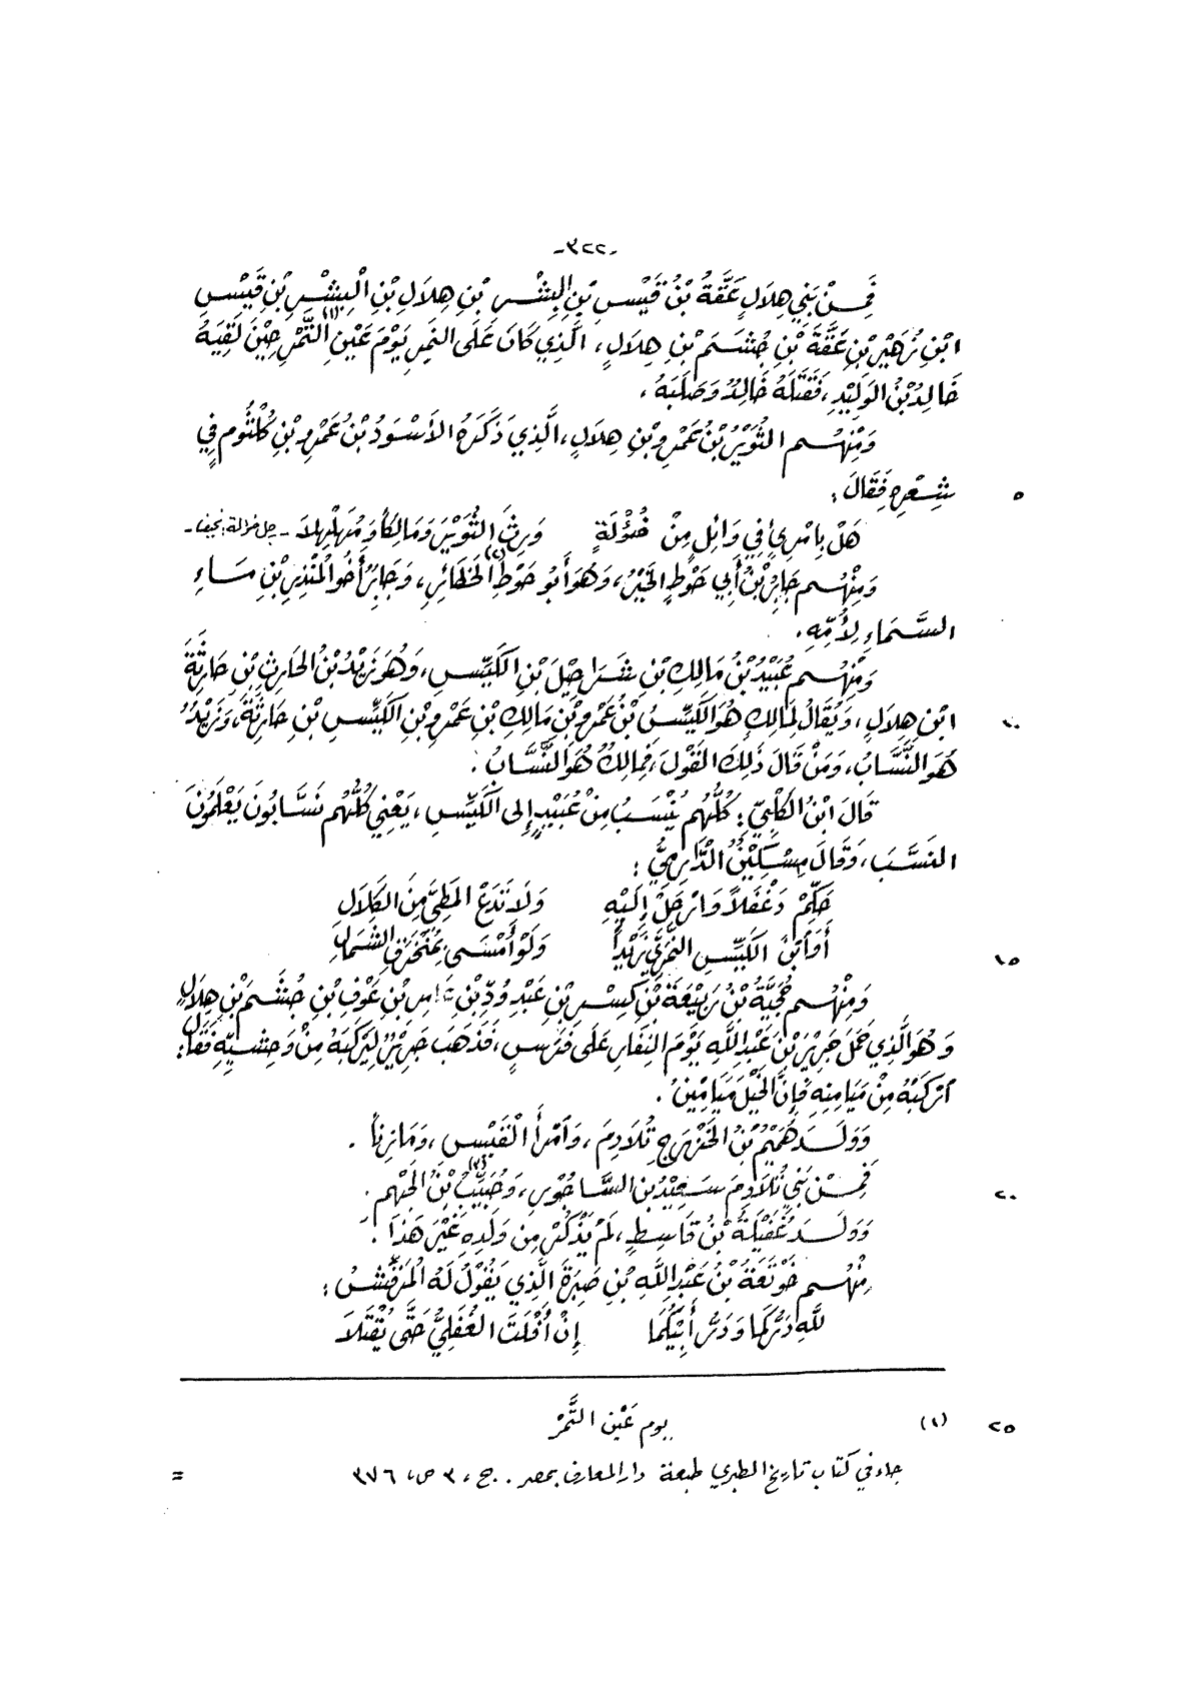 -٣٢٢-
فَمِنْ بَنِي هِلَالٍ عَقَّةُ بْنُ قَيْسِ بْنِ البِشْرِ بْنِ هِلَالِ بْنِ الْبِشْرِ بْنِ قَيْسِ
ابْنِ زُهَيْرِ بْنِ عَقَّةَ بْنِ جُشَمَ بْنِ هِلَالٍ، الَّذِي كَانَ عَلَى النَّمِرِ يَوْمَ عَيْنِ التَّمْرِ (١) حِيْنَ لَقِيَهُ
خَالِدُ بْنُ الوَلِيْدِ، فَقَتَلَهُ خَالِدٌ وَصَلَبَهُ.
وَمِنْهُم التُّوَيْرُ بْنُ عَمْرِو بْنِ هِلَالٍ، الَّذِي ذَكَرَهُ الأَسْوَدُ بْنُ عَمْرِو بْنِ كُلْثُومٍ فِي
٥ شِعْرِهِ فَقَالَ:
هَلْ بِامْرِئٍ فِي وَائِلٍ مِنْ ضُؤْلَةٍ وَرِثَ التُّوَيْرَ وَمَالِكاً وَمُهَلْهِلاَ - رجل ضؤلة: نحيف -
وَمِنْهُم جَابِرُ بْنُ أَبِي حَوْطٍ الخَيْرُ، وَهُوَ أَبُو حَوْطِ الحَظَائِرِ (٢)، وَجَابِرٌ أَخُو المُنْذِرِ بْنِ مَاءِ
السَّمَاءِ لِأُمِّهِ.
وَمِنْهُم عُبَيْدُ بْنُ مَالِكِ بْنِ شَرَاحِيْلَ بْنِ الكَيِّسِ، وَهُوَ زَيْدُ بْنُ الحَارِثِ بْنِ حَارِثَةَ
١٠ ابْنِ هِلَالٍ، وَيُقَالُ لِمَالِكٍ هُوَ الكَيِّسُ بْنُ عَمْرِو بْنِ مَالِكِ بْنِ عَمْرِو بْنِ الكَيِّسِ بْنِ حَارِثَةَ، وَزَيْدٌ
هُوَ النَّسَّابُ، وَمَنْ قَالَ ذَلِكَ القَوْلَ، فَمَالِكٌ هُوَ النَّسَّابُ.
قَالَ ابْنُ الكَلْبِيِّ: كُلُّهُم يُنْسَبُ مِنْ عُبَيْدٍ إِلى الكَيِّسِ، يَعْنِي كُلُّهُم نَسَّابُونَ يَعْلَمُونَ
النَّسَبَ، وَقَالَ مِسْكِيْنٌ الدَّارِمِيُّ:
حَكِّمْ دَغْفَلاً وَارْحَلْ إِلَيْهِ وَلَا تَدَعْ المَطِيَّ مِنَ الكَلَالِ
١٥ أَوِ ابْنَ الكَيِّسِ النَّمَرِيَّ زَيْداً وَلَوْ أَمْسَى بِمُنْخَرَقِ الشَّمَالِ
وَمِنْهُم حُجَيَّةُ بْنُ رَبِيْعَةَ بْنِ كِسْرِ بْنِ عَبْدِ وُدِّ بْنِ بْنِ عَوْفِ بْنِ جُشَمَ بْنِ هِلَالٍ
وَهُوَ الَّذِي حَمَلَ جَرِيْرَ بْنَ عَبْدِ اللَّهِ يَوْمَ النِّفَارِ عَلَى فَرَسٍ، فَذَهَبَ جَرِيْرٌ لِيَرْكَبَهُ مِنْ وَحْشِيِّهِ فَقَالَ:
ارْكَبْهُ مِنْ مَيَامِنِهِ فَإِنَّ الخَيْلَ مَيَامِيْنُ.
وَوَلَدَ هُمَيْمُ بْنُ الخَزْرَجِ تُلَادِمَ، وَامْرأَ القَيْسِ، وَمَازِناً.
٢٠ فَمِنْ بَنِي تُلَادِمَ سَعِيْدُ بْنُ السَّاجُورِ، وَحُبَيِّبُ (٣) بْنُ الجَهْمِ.
وَوَلَدَ غُفَيْلَةُ بْنُ قَاسِطٍ، لَمْ يُذْكَرْ مِنْ وَلَدِهِ غَيْرَ هَذَا.
مِنْهُم خَوْتَعَةُ بْنُ عَبْدِ اللَّهِ بْنِ صَبِرَةَ الَّذِي يَقُوْلُ لَهُ المُرَقِّشُ:
لِلَّهِ دَرُّكُمَا وَدَرُّ أَبِيْكُمَا إِنْ أَفْلَتَ الغُفَلِيُّ حَتَّى يُقْتَلاَ
٢٥ (١) يوم عَيْن التَّمْر
جاء في كتاب تاريخ الطبري طبعة دار المعارف بمصر. ج، ٣ ص، ٣٧٦ =